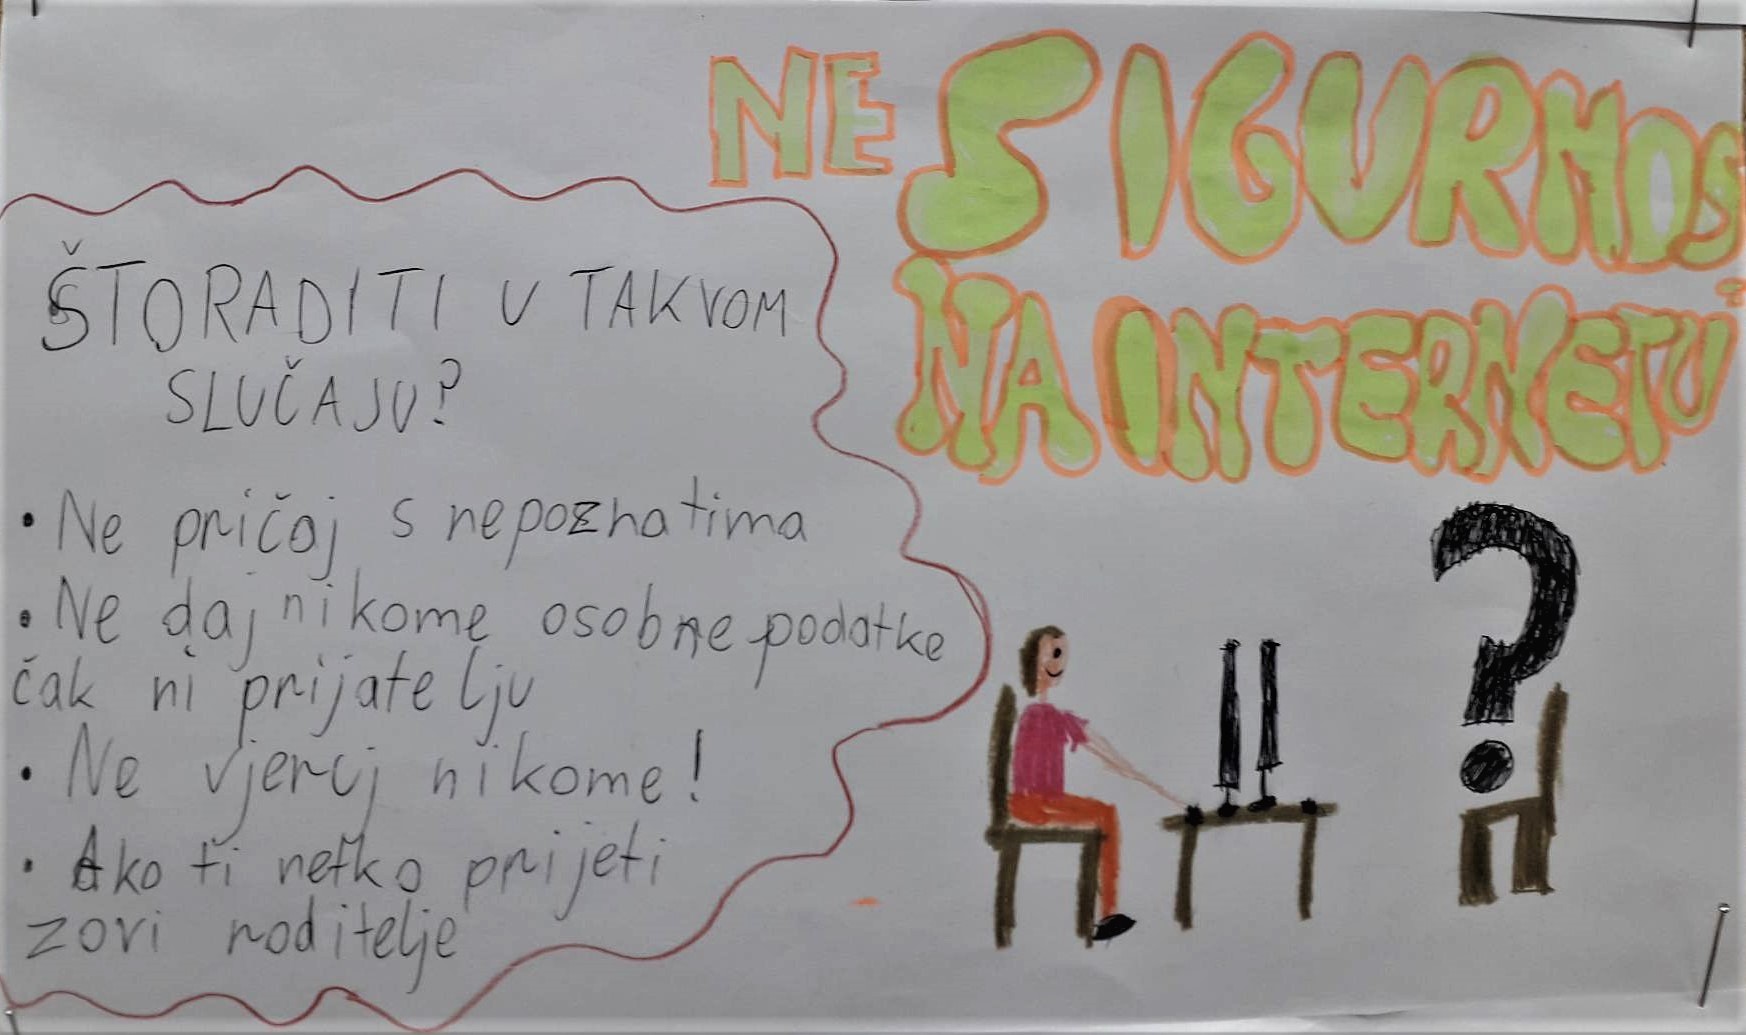 NE SIGURNOST
NA INTERNETU
ŠTO RADITI U TAKVOM
SLUČAJU?
• Ne pričaj s nepoznatima
• Ne daj nikome osobne podatke
čak ni prijatelju
• Ne vjeruj nikome!
• Ako ti netko prijeti
zovi roditelje